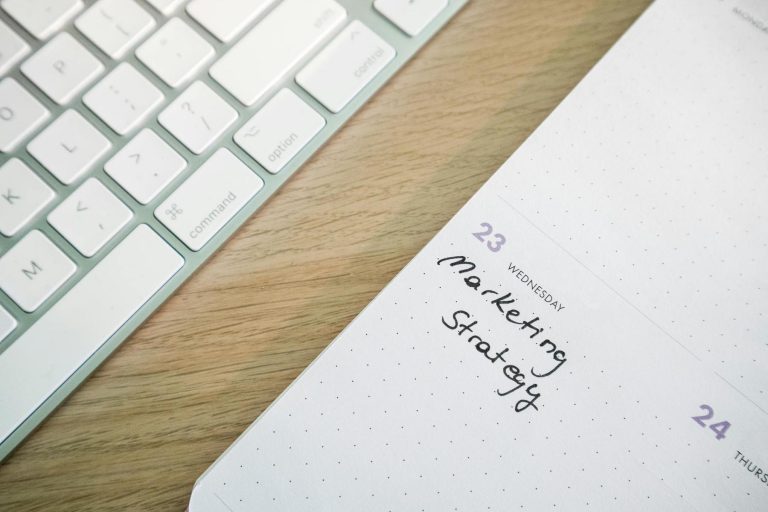 shift
control
option
command
⌘
O
P
L
K
M
:
;
?
/
>
.
<
,
MONDA
23
WEDNESDAY
Marketing
Strategy
24
THURS